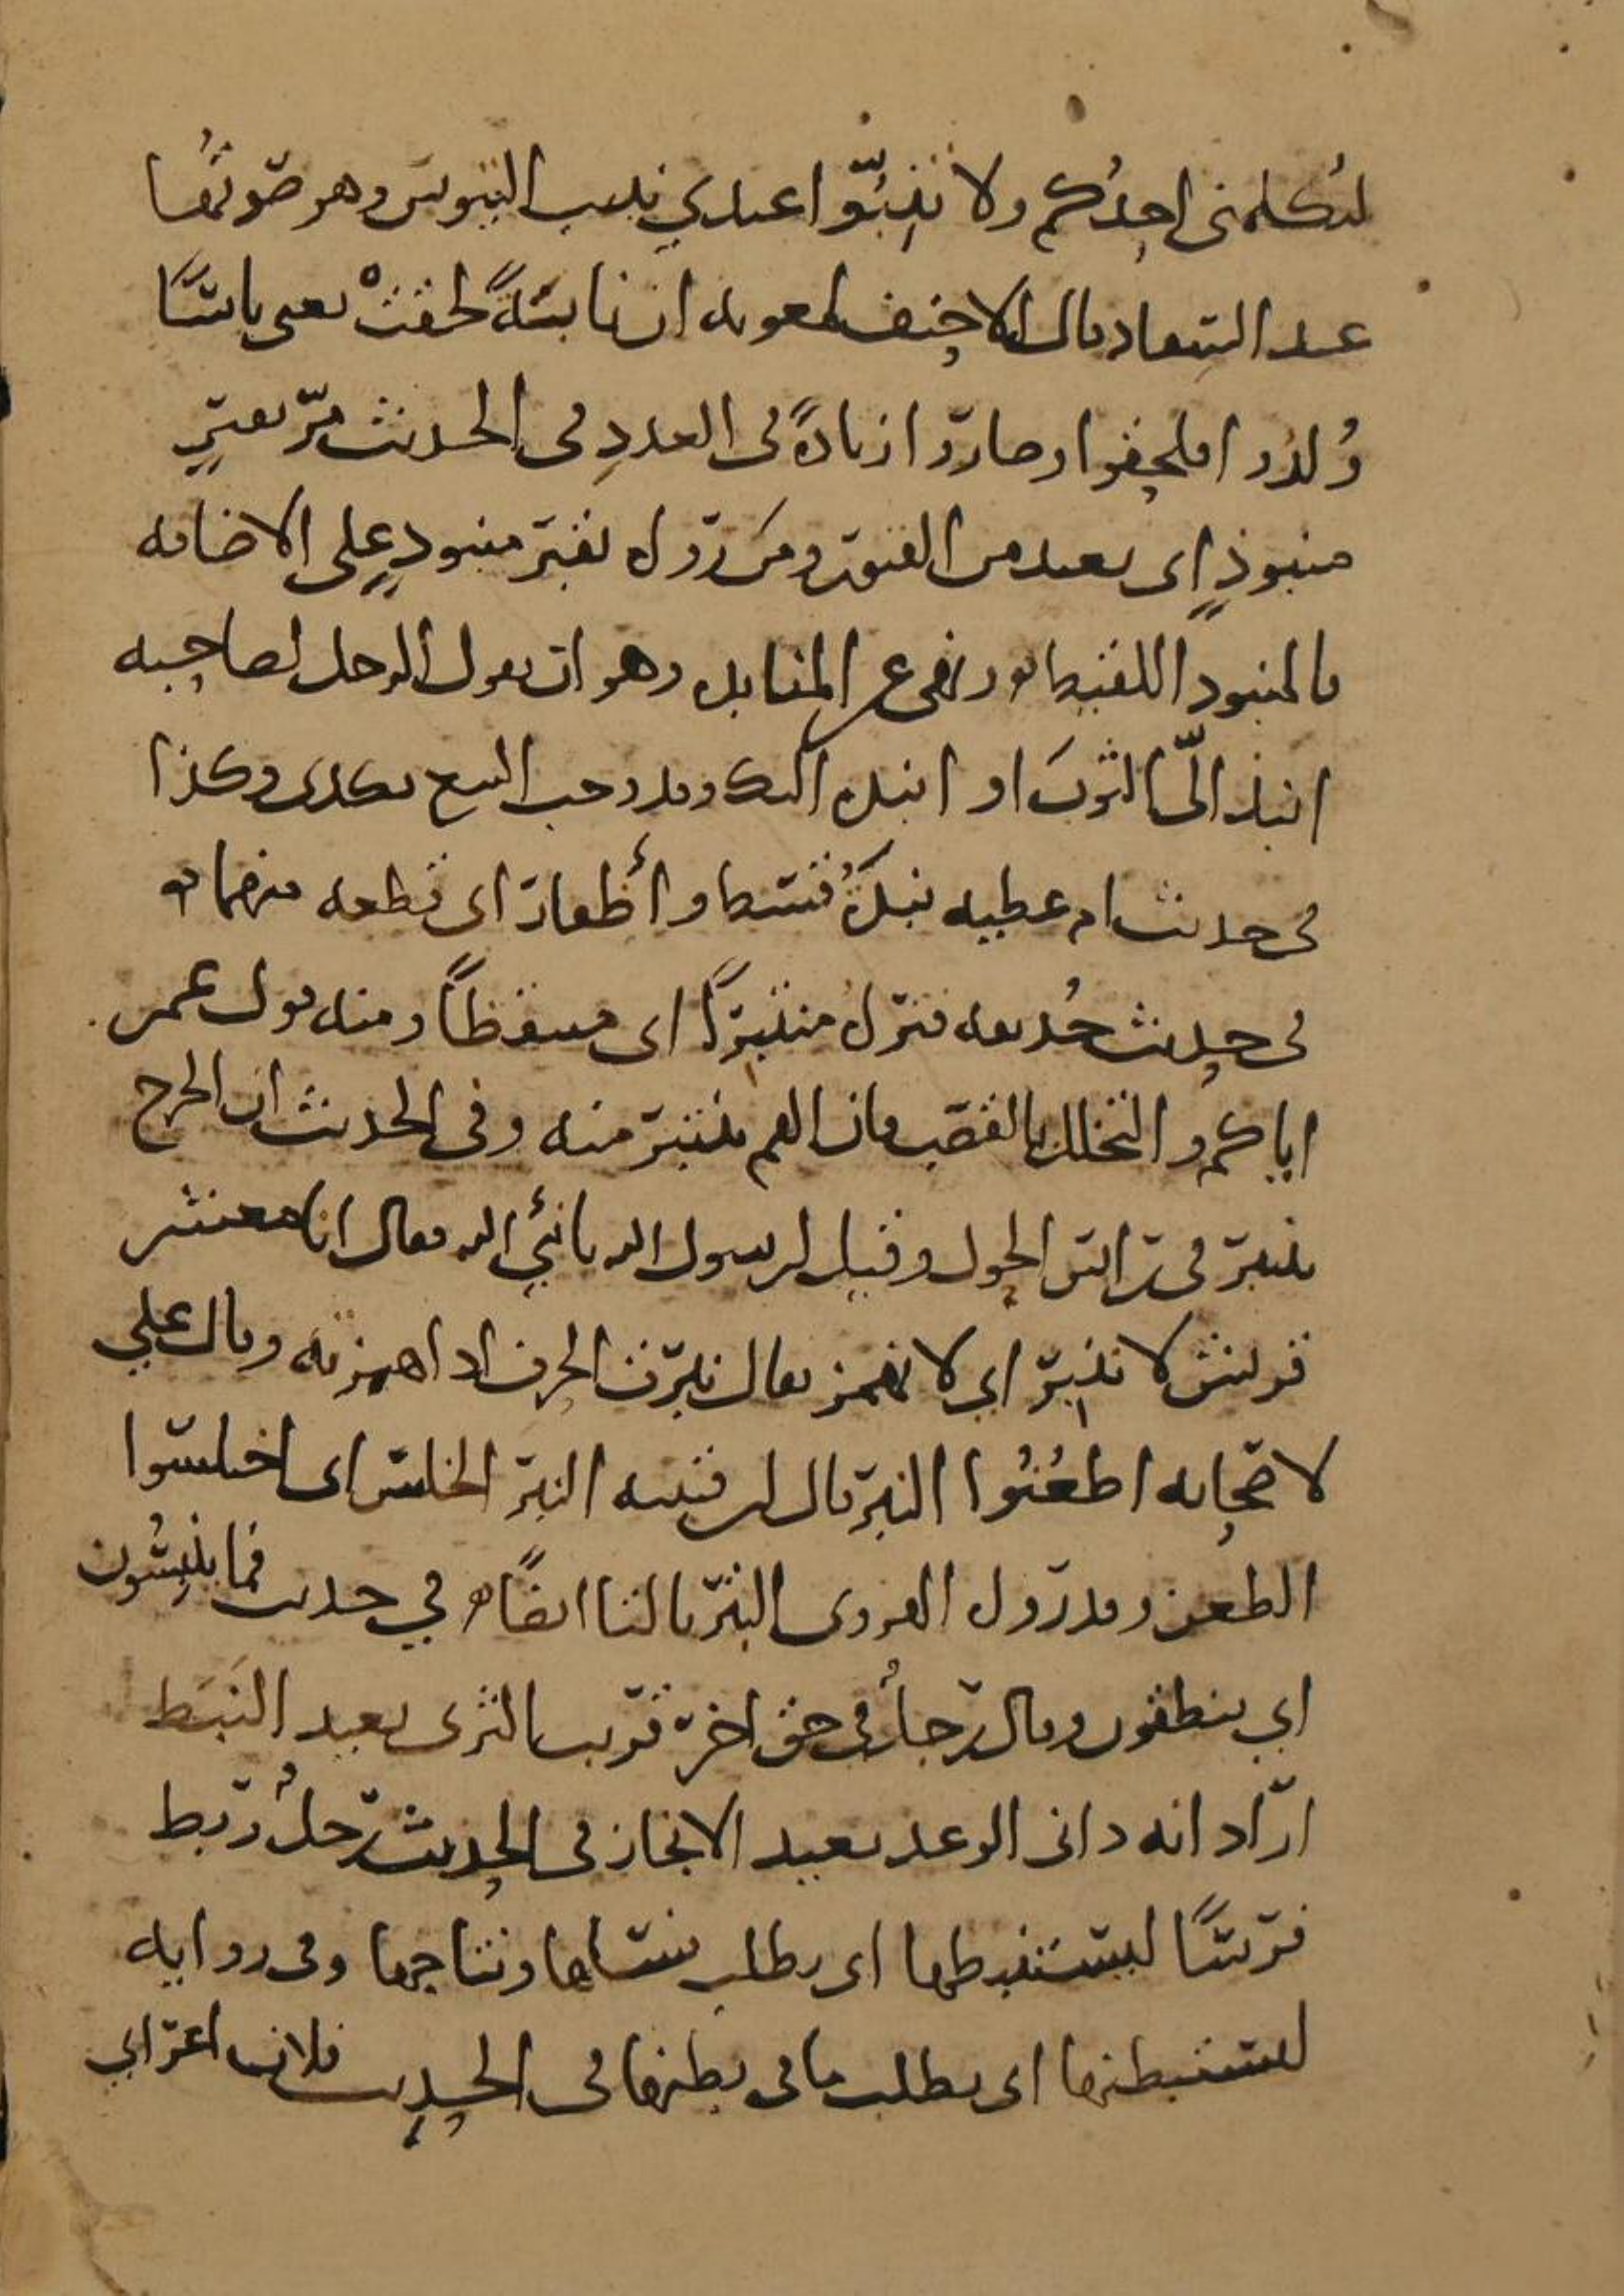 ليكلمني احدكم ولا تنبوا عندي نبيب التيوس وهو صوتها
عند السفاد قال الاحنف لمعويه ان نابتةً لحقت يعني ناسًا
وُلدوا فلحقوا وصاروا زيادةً في العدد في الحديث مرّ بقبرٍ
منبوذٍ اى بعيد من القبور ومن روى له بقبر منبوذٍ على الاضافه
فالمنبوذ اللقيط ونهى عن المنابذه وهو ان يقول الرجل لصاحبه
انبذ اليّ الثوبَ او انبذه اليك وقد وجب البيع بكذى وكذا
في حديث ام عطيه نبذةُ قسط واظفار اى قطعه منهما
في حديث حُذيفه فتراه منتبرًا اى منتفظًا ومنه قول عمر
اياكم والتخلل بالقصب فان الفم ينتبر منه وفى الحديث ان الجرح
ينتبر في راس الحول وقيل لرسول الله يا نبيء الله فقال انا معشر
قريش لا ننبرّ اي لا نهمز يقال نبرت الحرف اذا همزته وقال علي
لاصحابه اطعُنُوا النبر قال ابن قتيبه النبر الخلس اى اختلسوا
الطعن وقد روى الهروى النتر بالتا ايضًا في حديث فما ينبسُون
اي ينطقون وقال رجلٌ في حق اخر قريب الثرى بعيد النَبَط
اراد انه دانى الوعد بعيد الانجاز في الحديث رجلٌ ربط
فرسًا ليستنبطها اى يطلب نسلها ونتاجها وفى روايه
ليستبطنها اى يطلب ما فى بطنها في الحديث فلان اعرابي